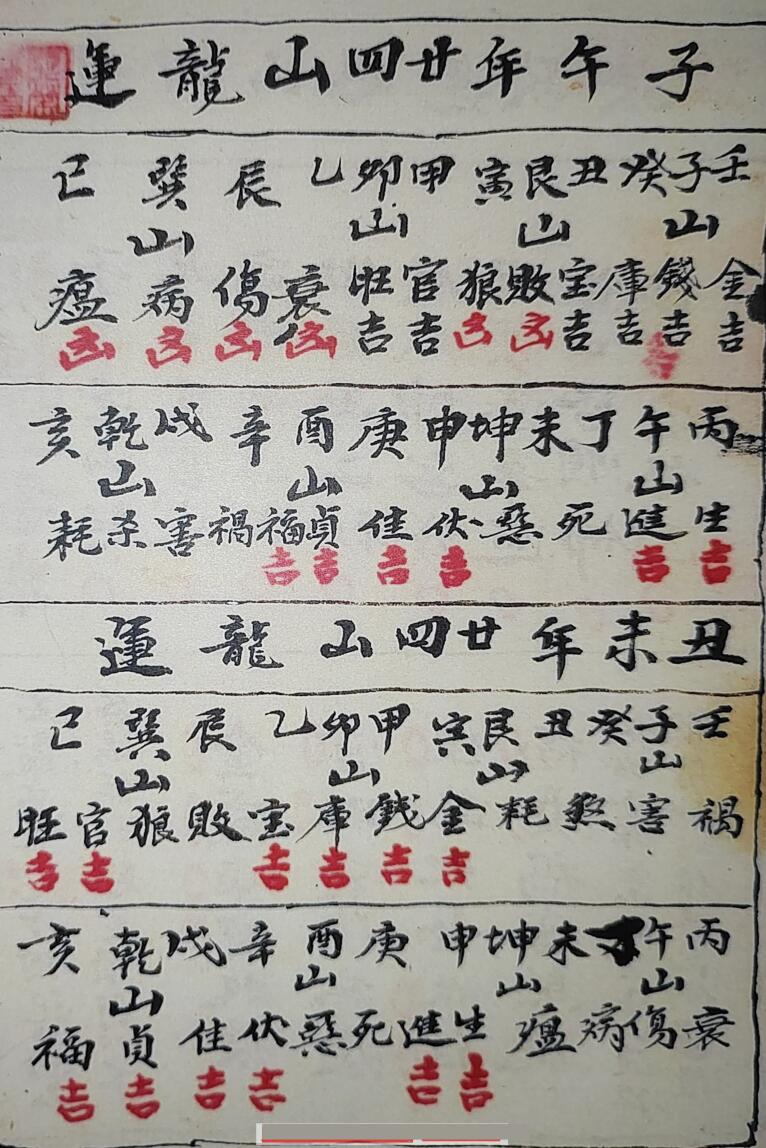 子午年廿四山龍運
壬子癸丑艮寅甲卯乙辰巽巳
山山山山
金錢庫宝敗狼官旺衰傷病瘟
吉吉吉吉凶凶吉吉凶凶凶凶
丙午丁未坤申庚酉辛戌乾亥
山山山山
生進死惡伏佳貞福禍害杀耗
吉吉吉吉吉吉
丑未年廿四山龍運
壬子癸丑艮寅甲卯乙辰巽巳
山山山山
禍害煞耗金錢庫宝敗狼官旺
吉吉吉吉吉吉
丙午丁未坤申庚酉辛戌乾亥
山山山山
衰傷病瘟生進死惡伏佳貞福
吉吉吉吉吉吉